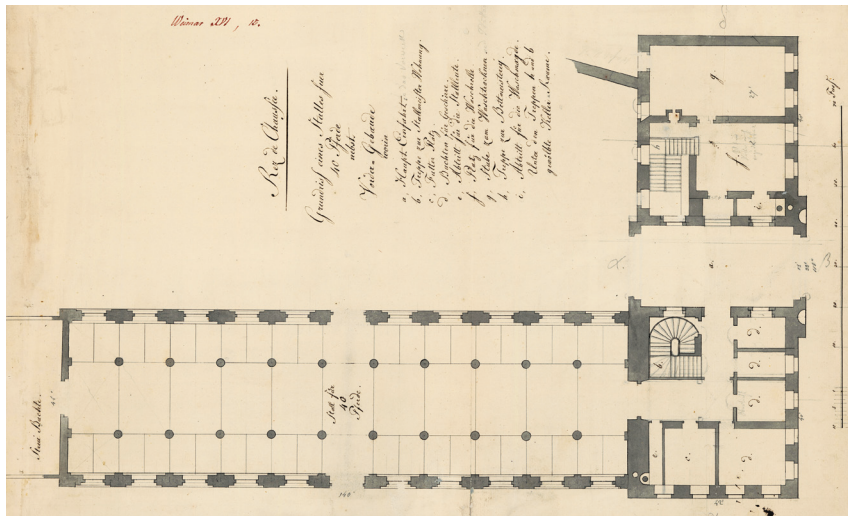 Weimar XVI, 15.
Rez de Chaussée.
Grundriss eines Stalles für
40 Pferde
nebst
Vorder-Gebäude
worin
a. Haupt Einfahrt.
b. Treppe zur Stallmeister Wohnung.
c. Futter Platz.
d. Buchten für Geschirre.
e. Abtritt für die Stallleute.
f. Platz für die Wäschrolle
g. Stube zum Wäschtrocknen
h. Treppe zur
i. Abtritt für die Waschmägde.
Unter den Treppen h und b
gewölbte Keller Räume.
g.
f.
h
i.
a.
b.
d.
d.
d.
d.
c.
e.
Stall für
40
Pferde.
140'